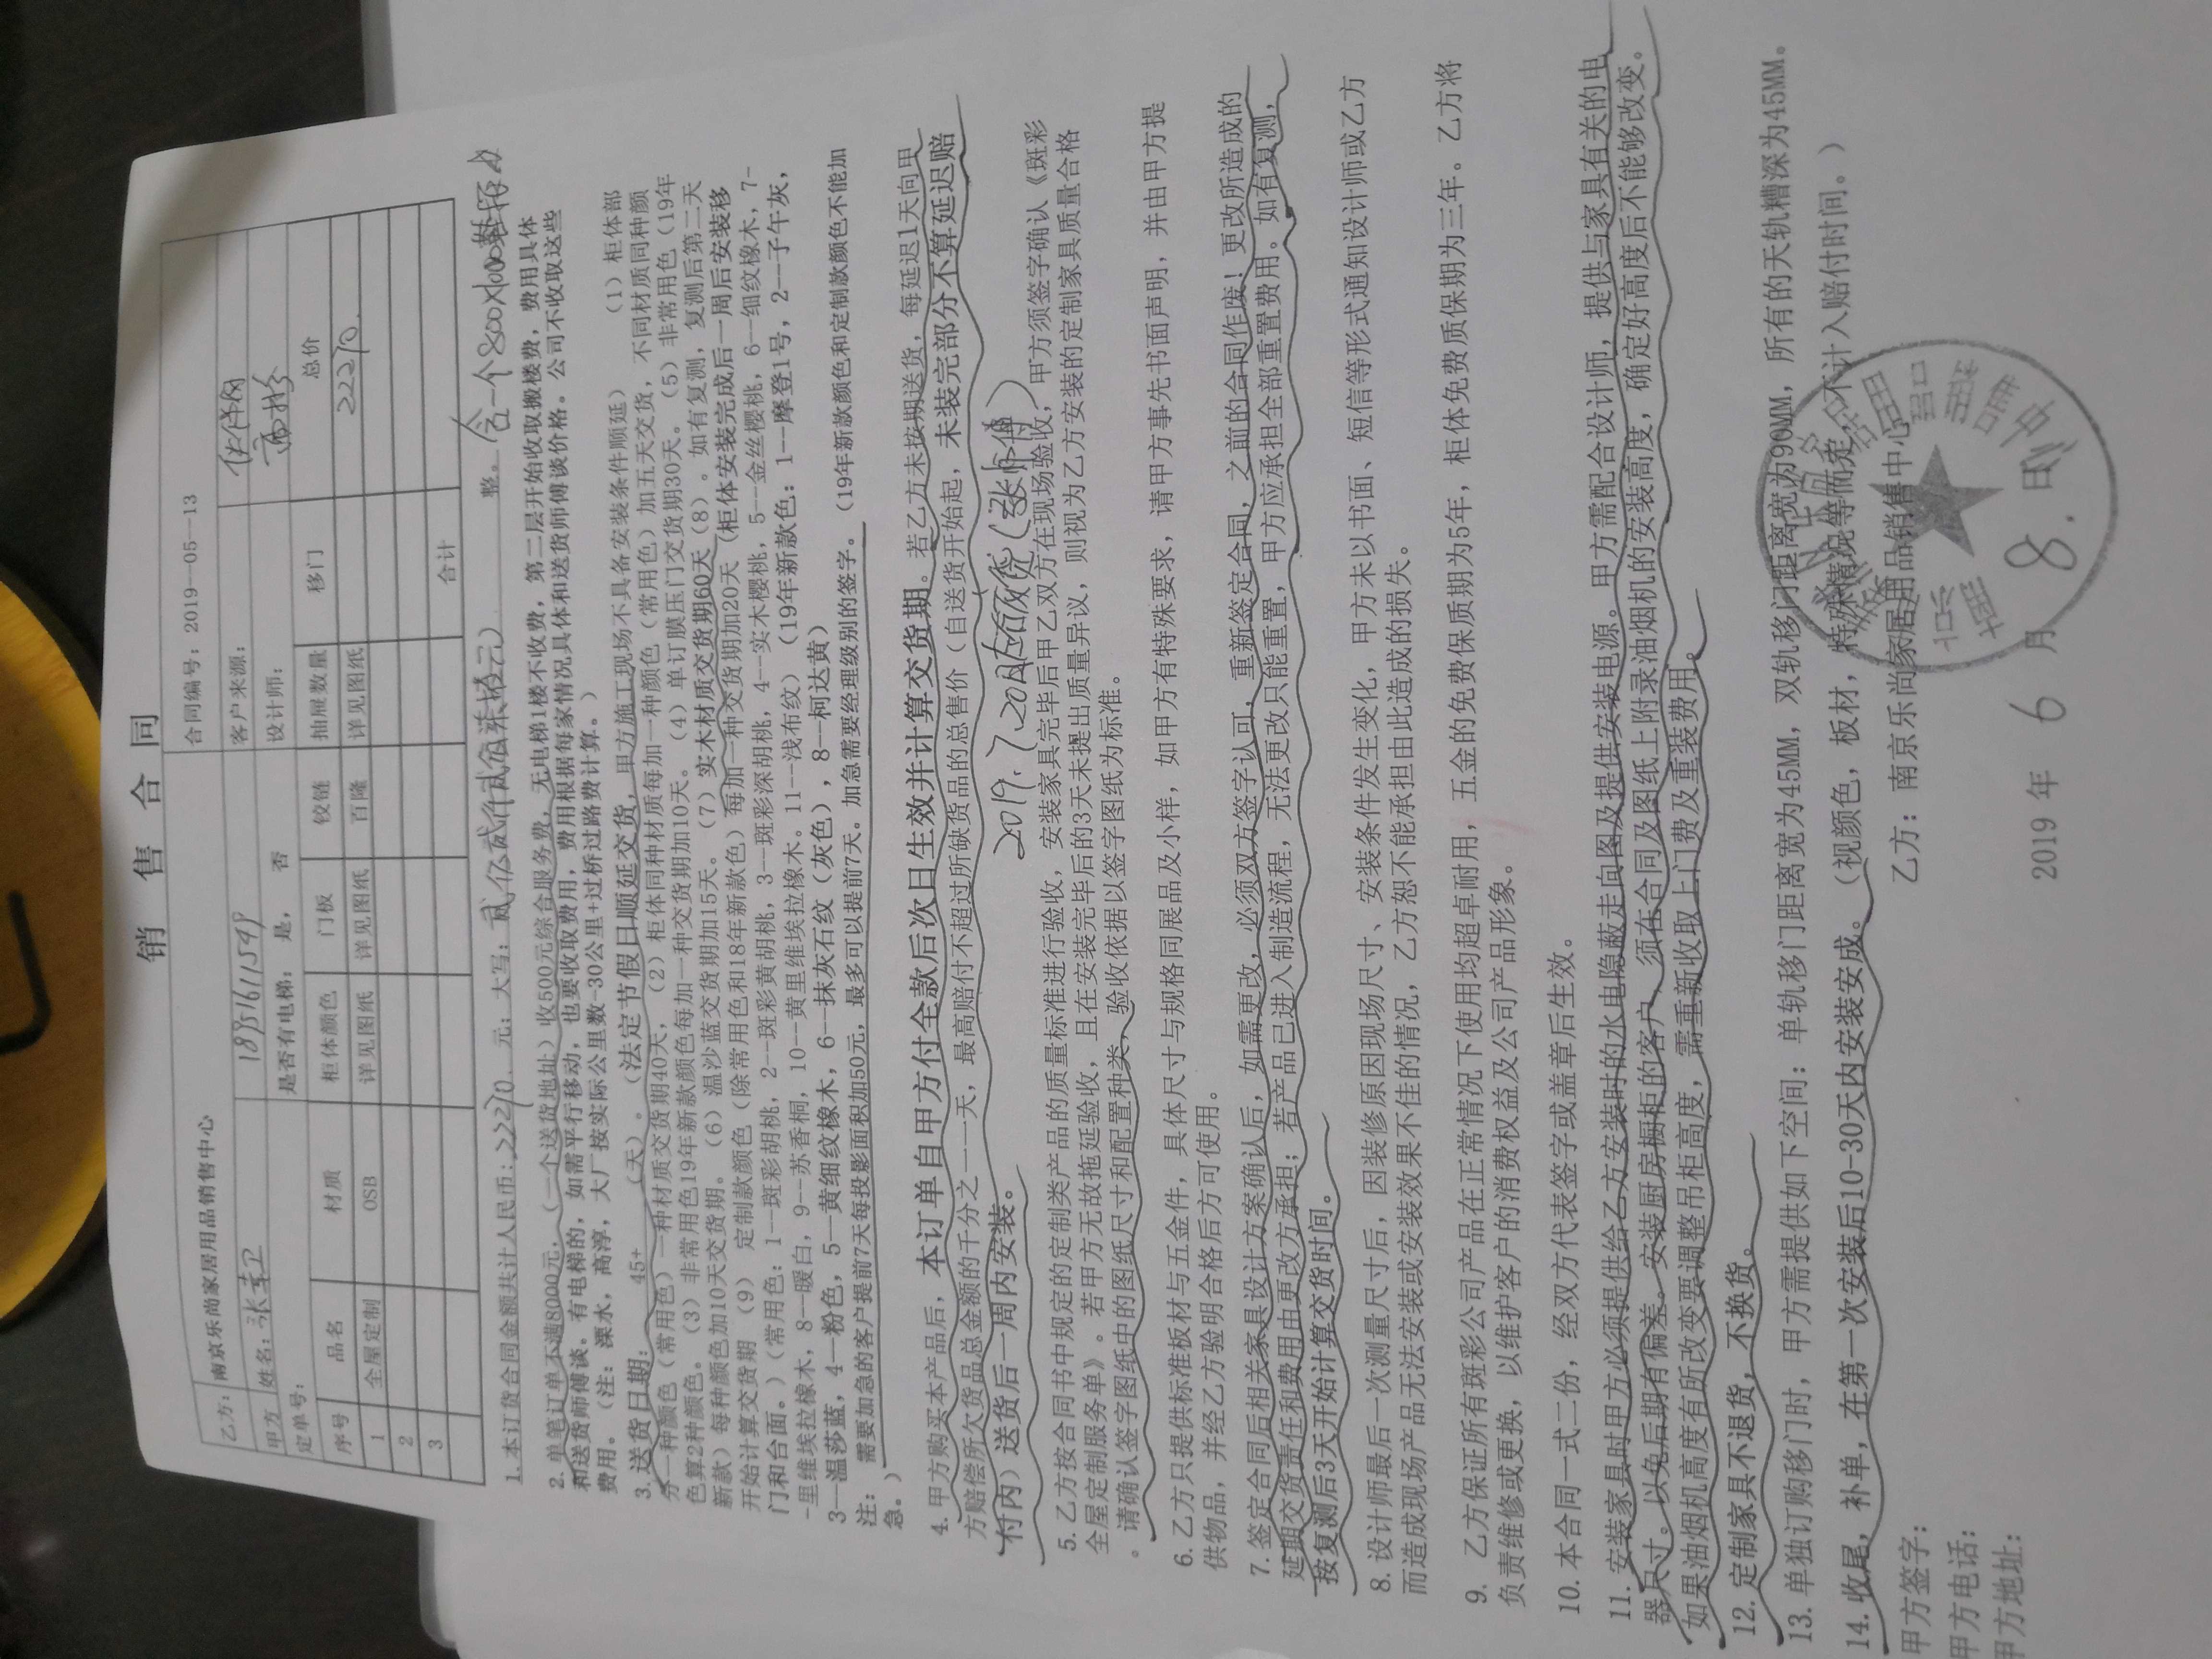 销 售 合 同
合同编号：2019-05-13
乙方： 南京乐尚家居用品销售中心 客户来源：
甲方 姓名： 设计师：
定单号： 是否有电梯： 是， 否
序号 品名 材质 柜体颜色 门板 铰链 抽屉数量 移门 总价
1 全屋定制 OSB 详见图纸 详见图纸 百隆 详见图纸 22270
2
3
合计
1.本订货合同金额共计人民币:22270 元；大写： 整。含一个800X1000
2.单笔订单不满8000元，（一个送货地址）收500元综合服务费，无电梯1楼不收费，第二层开始收取搬楼费，费用具体
和送货师傅谈。有电梯的，如需平行移动，也要收取费用，费用根据每家情况具体和送货师傅谈价格。公司不收取这些
费用。（注：溧水，高淳，大厂按实际公里数-30公里+过桥过路费计算。）
3.送货日期： 45+ （天）。（法定节假日顺延交货，甲方施工现场不具备安装条件顺延） （1）柜体部
分一种颜色（常用色）一种材质交货期40天，（2）柜体同种材质每加一种颜色（常用色）加五天交货，不同材质同种颜
色算2种颜色。（3）非常用色19年新款颜色每加一种交货期加10天。（4）单订膜压门交货期30天。（5）非常用色（19年
新款）每种颜色加10天交货期。（6）温沙蓝交货期加15天。（7）实木材质交货期60天（8）。如有复测，复测后第二天
开始计算交货期 （9） 定制款颜色（除常用色和18年新款色）每加一种交货期加20天（柜体安装完成后一周后安装移
门和台面。）（常用色：1--斑彩胡桃，2--斑彩黄胡桃，3--斑彩深胡桃，4--实木樱桃，5--金丝樱桃，6--细纹橡木，7-
-里维埃拉橡木，8--暖白，9--苏香桐，10--黄里维埃拉橡木．11--浅布纹） （19年新款色：1--摩登1号，2--子午灰，
3--温莎蓝，4--粉色，5--黄细纹橡木，6--抹灰石纹（灰色），8--柯达黄）
注： 需要加急的客户提前7天每投影面积加50元，最多可以提前7天。加急需要经理级别的签字。（19年新款颜色和定制款颜色不能加
急。）
4. 甲方购买本产品后，本订单自甲方付全款后次日生效并计算交货期。若乙方未按期送货，每延迟1天向甲
方赔偿所欠货品总金额的千分之一一天，最高赔付不超过所缺货品的总售价（自送货开始起，未装完部分不算延迟赔
付内）送货后一周内安装。 2019.7.20
5.乙方按合同书中规定的定制类产品的质量标准进行验收，安装家具完毕后甲乙双方在现场验收，甲方须签字确认《斑彩
全屋定制服务单》。若甲方无故拖延验收，且在安装完毕后的3天未提出质量异议，则视为乙方安装的定制家具质量合格
。请确认签字图纸中的图纸尺寸和配置种类，验收依据以签字图纸为标准。
6.乙方只提供标准板材与五金件，具体尺寸与规格同展品及小样，如甲方有特殊要求，请甲方事先书面声明，并由甲方提
供物品，并经乙方验明合格后方可使用。
7.签定合同后相关家具设计方案确认后，如需更改，必须双方签字认可，重新签定合同，之前的合同作废！更改所造成的
延期交货责任和费用由更改方承担；若产品已进入制造流程，无法更改只能重置，甲方应承担全部重置费用。如有复测，
按复测后3天开始计算交货时间。
8.设计师最后一次测量尺寸后，因装修原因现场尺寸、安装条件发生变化，甲方未以书面、短信等形式通知设计师或乙方
而造成现场产品无法安装或安装效果不佳的情况，乙方恕不能承担由此造成的损失。
9. 乙方保证所有斑彩公司产品在正常情况下使用均超卓耐用，五金的免费保质期为5年，柜体免费质保期为三年。乙方将
负责维修或更换，以维护客户的消费权益及公司产品形象。
10.本合同一式二份，经双方代表签字或盖章后生效。
11.安装家具时甲方必须提供给乙方安装时的水电隐蔽走向图及提供安装电源。甲方需配合设计师，提供与家具有关的电
器尺寸。以免后期有偏差。安装厨房橱柜的客户，须在合同及图纸上附录油烟机的安装高度，确定好高度后不能够改变。
如果油烟机高度有所改变要调整吊柜高度，需重新收取上门费及重装费用。
12.定制家具不退货，不换货。
13.单独订购移门时，甲方需提供如下空间：单轨移门距离宽为45MM，双轨移门距离宽为90MM，所有的天轨糟深为45MM.
14.收尾，补单，在第一次安装后10-30天内安装安成。（视颜色，板材，特殊情况等而定，不计入赔付时间。）
甲方签字： 乙方：南京乐尚家居用品销售中心
甲方电话：
甲方地址： 2019年 6 月 8. 日